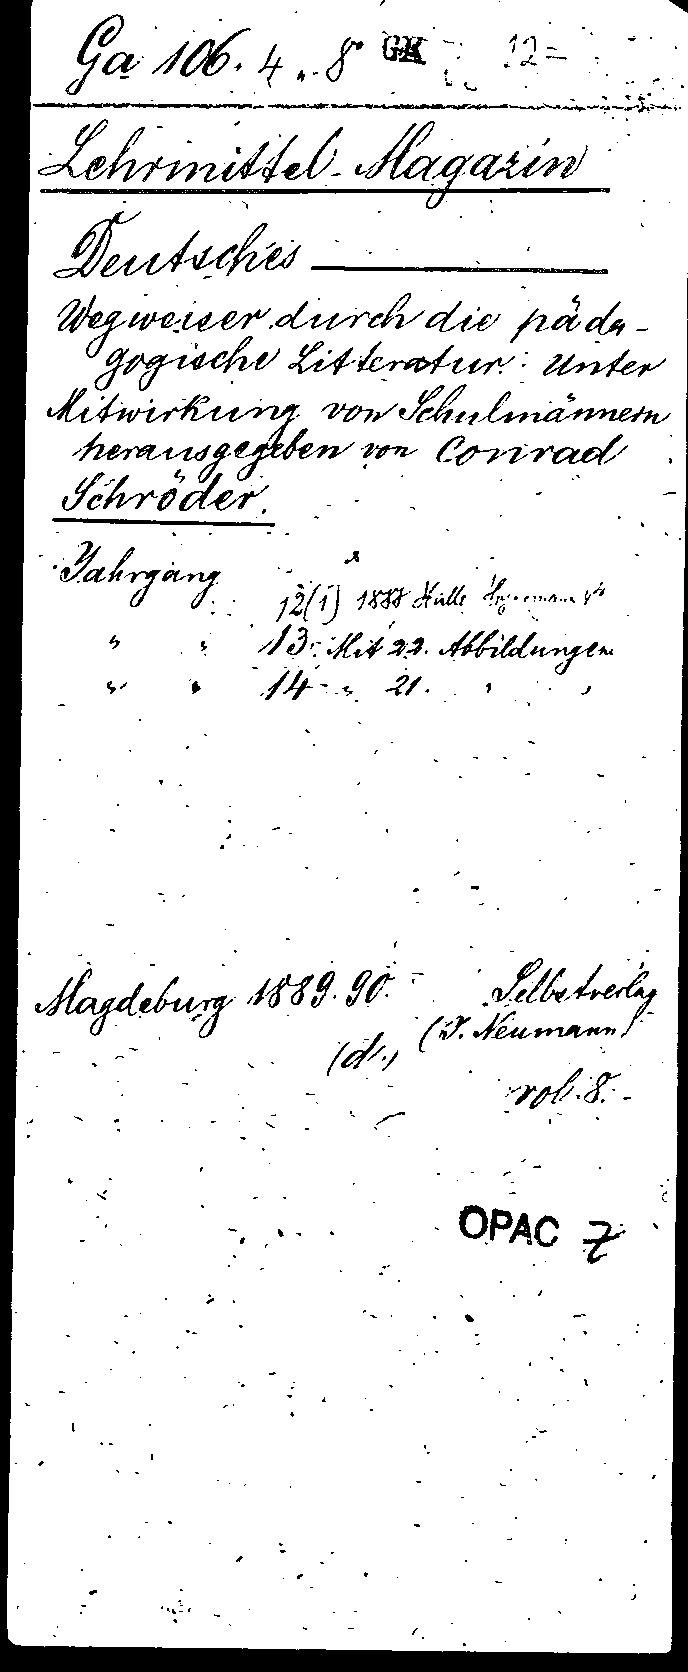 Ga 106. 4„. 8° GK 12=
Lehrmittel-Magazin
Deutsches
Wegweiser durch die päda-
gogische Litteratur. Unter
Mitwirkung von Schulmännern
herausgegeben von Conrad
Schröder.
Jahrgang
12(1) 1888 Halle
" " 13- Mit 22. Abbildungen
" " 14- " 21. " "
Magdeburg 1889. 90. Selbstverlag
(J. Neumann)
(d.)
vol. 8.
OPAC Z